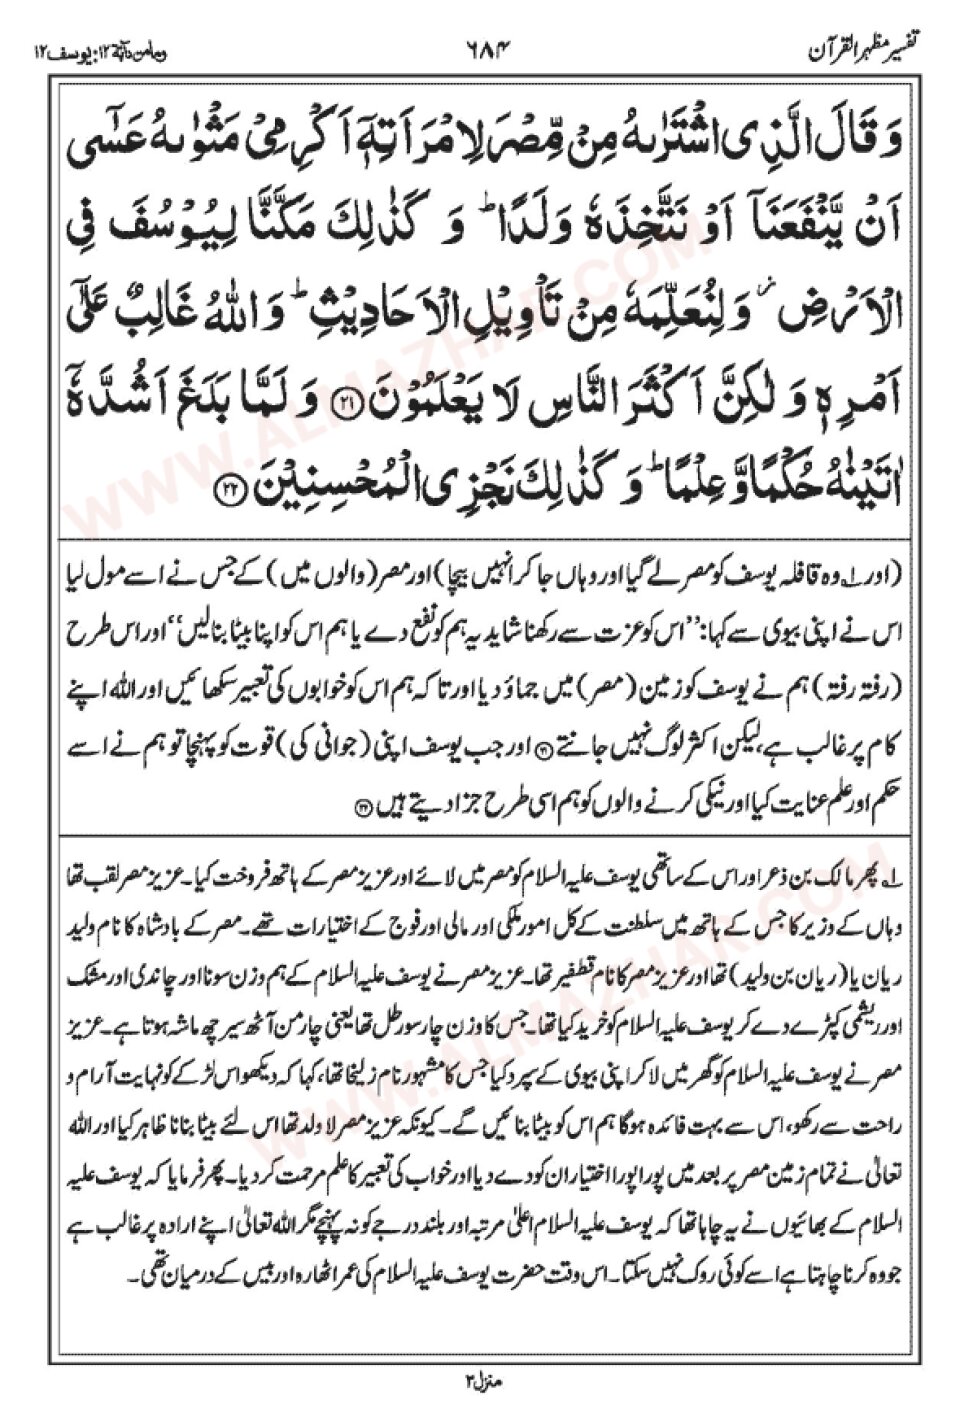 تفسیر مظہر القرآن ۶۸۴ ومامن دآبۃ ۱۲: یوسف ۱۲
وَقَالَ الَّذِی اشْتَرٰىهُ مِنْ مِّصْرَ لِامْرَاَتِهٖۤ اَكْرِمِیْ مَثْوٰىهُ عَسٰۤى
اَنْ یَّنْفَعَنَاۤ اَوْ نَتَّخِذَهٗ وَلَدًا ؕ وَ كَذٰلِكَ مَكَّنَّا لِیُوْسُفَ فِی
الْاَرْضِ ؗ وَلِنُعَلِّمَهٗ مِنْ تَاْوِیْلِ الْاَحَادِیْثِ ؕ وَاللّٰهُ غَالِبٌ عَلٰۤى
اَمْرِهٖ وَلٰكِنَّ اَكْثَرَ النَّاسِ لَا یَعْلَمُوْنَ ۲۱ وَلَمَّا بَلَغَ اَشُدَّهٗۤ
اٰتَیْنٰهُ حُكْمًا وَّعِلْمًا ؕ وَ كَذٰلِكَ نَجْزِی الْمُحْسِنِیْنَ ۲۲
(اور ۱؎ وہ قافلہ یوسف کو مصر لے گیا اور وہاں جا کر انہیں بیچا) اور مصر (والوں میں) کے جس نے اسے مول لیا
اس نے اپنی بیوی سے کہا: ’’اس کو عزت سے رکھنا شاید یہ ہم کو نفع دے یا ہم اس کو اپنا بیٹا بنالیں‘‘ اور اس طرح
(رفتہ رفتہ) ہم نے یوسف کو زمین (مصر) میں جماؤ دیا اور تاکہ ہم اس کو خوابوں کی تعبیر سکھائیں اور اللہ اپنے
کام پر غالب ہے، لیکن اکثر لوگ نہیں جانتے ۲۱ اور جب یوسف اپنی (جوانی کی) قوت کو پہنچا تو ہم نے اسے
حکم اور علم عنایت کیا اور نیکی کرنے والوں کو ہم اسی طرح جزا دیتے ہیں ۲۲
۱؎ پھر مالک بن ذعر اور اس کے ساتھی یوسف علیہ السلام کو مصر میں لائے اور عزیز مصر کے ہاتھ فروخت کیا۔ عزیز مصر لقب تھا
وہاں کے وزیر کا جس کے ہاتھ میں سلطنت کے کل امور ملکی اور مالی اور فوج کے اختیارات تھے۔ مصر کے بادشاہ کا نام ولید
ریان یا (ریان بن ولید) تھا اور عزیز مصر کا نام قطفیر تھا۔ عزیز مصر نے یوسف علیہ السلام کے ہم وزن سونا اور چاندی اور مشک
اور ریشمی کپڑے دے کر یوسف علیہ السلام کو خرید کیا تھا۔ جس کا وزن چار سو رطل تھا یعنی چار من آٹھ سیر چھ ماشہ ہوتا ہے۔ عزیز
مصر نے یوسف علیہ السلام کو گھر میں لا کر اپنی بیوی کے سپرد کیا جس کا مشہور نام زلیخا تھا، کہا کہ دیکھو اس لڑکے کو نہایت آرام و
راحت سے رکھو، اس سے بہت فائدہ ہوگا ہم اس کو بیٹا بنائیں گے۔ کیونکہ عزیز مصر لا ولد تھا اس لئے بیٹا بنانا ظاہر کیا اور اللہ
تعالیٰ نے تمام زمین مصر پر بعد میں پورا پورا اختیار ان کو دے دیا اور خواب کی تعبیر کا علم مرحمت کر دیا۔ پھر فرمایا کہ یوسف علیہ
السلام کے بھائیوں نے یہ چاہا تھا کہ یوسف علیہ السلام اعلیٰ مرتبہ اور بلند درجے کو نہ پہنچے مگر اللہ تعالیٰ اپنے ارادہ پر غالب ہے
جو وہ کرنا چاہتا ہے اسے کوئی روک نہیں سکتا۔ اس وقت حضرت یوسف علیہ السلام کی عمر اٹھارہ اور بیس کے درمیان تھی۔
منزل ۳
WWW.ALMAZHAR.COM
WWW.ALMAZHAR.COM